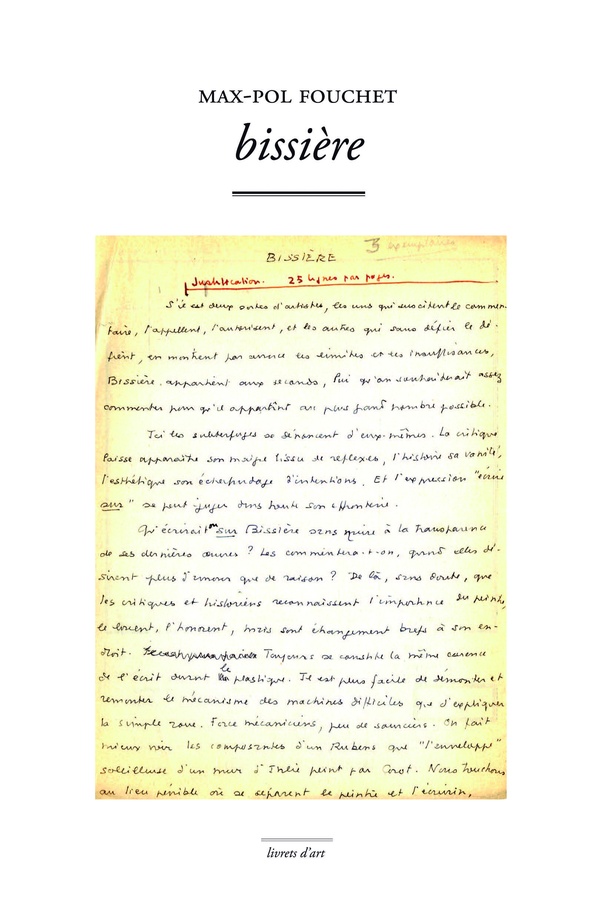 MAX-POL FOUCHET
bissière
3 exemplaires
BISSIÈRE
Justification. 25 lignes par pages.
S'il est deux sortes d'artistes, les uns qui suscitent le commen-
taire, l'appellent, l'autorisent, et les autres qui sans défier le dé-
fient, en montrent par avance les limites et les insuffisances,
Bissière appartient aux seconds, lui qu'on souhaiterait assez
commenter pour qu'il appartînt au plus grand nombre possible.
Ici les subterfuges se dénoncent d'eux-mêmes. La critique
laisse apparaître son maigre tissu de réflexes, l'histoire sa vanité,
l'esthétique son échafaudage d'intentions. Et l'expression "écrire
sur" se peut juger dans toute son effronterie.
Qu'écrirait-on sur Bissière sans nuire à la transparence
de ses dernières œuvres ? Les commentera-t-on, quand elles dé-
sirent plus d'amour que de raison ? De là, sans doute, que
les critiques et historiens reconnaissent l'importance du peintre,
le louent, l'honorent, mais sont étrangement brefs à son en-
droit. Toujours se constate la même carence
de l'écrit devant le plastique. Il est plus facile de démonter et
remonter le mécanisme des machines difficiles que d'expliquer
la simple roue. Force mécaniciens, peu de sourciers. On fait
mieux voir les composantes d'un Rubens que "l'enveloppe"
soleilleuse d'un mur d'Italie peint par Corot. Nous touchons
au lieu pénible où se séparent le peintre et l'écrivain,
livrets d'art